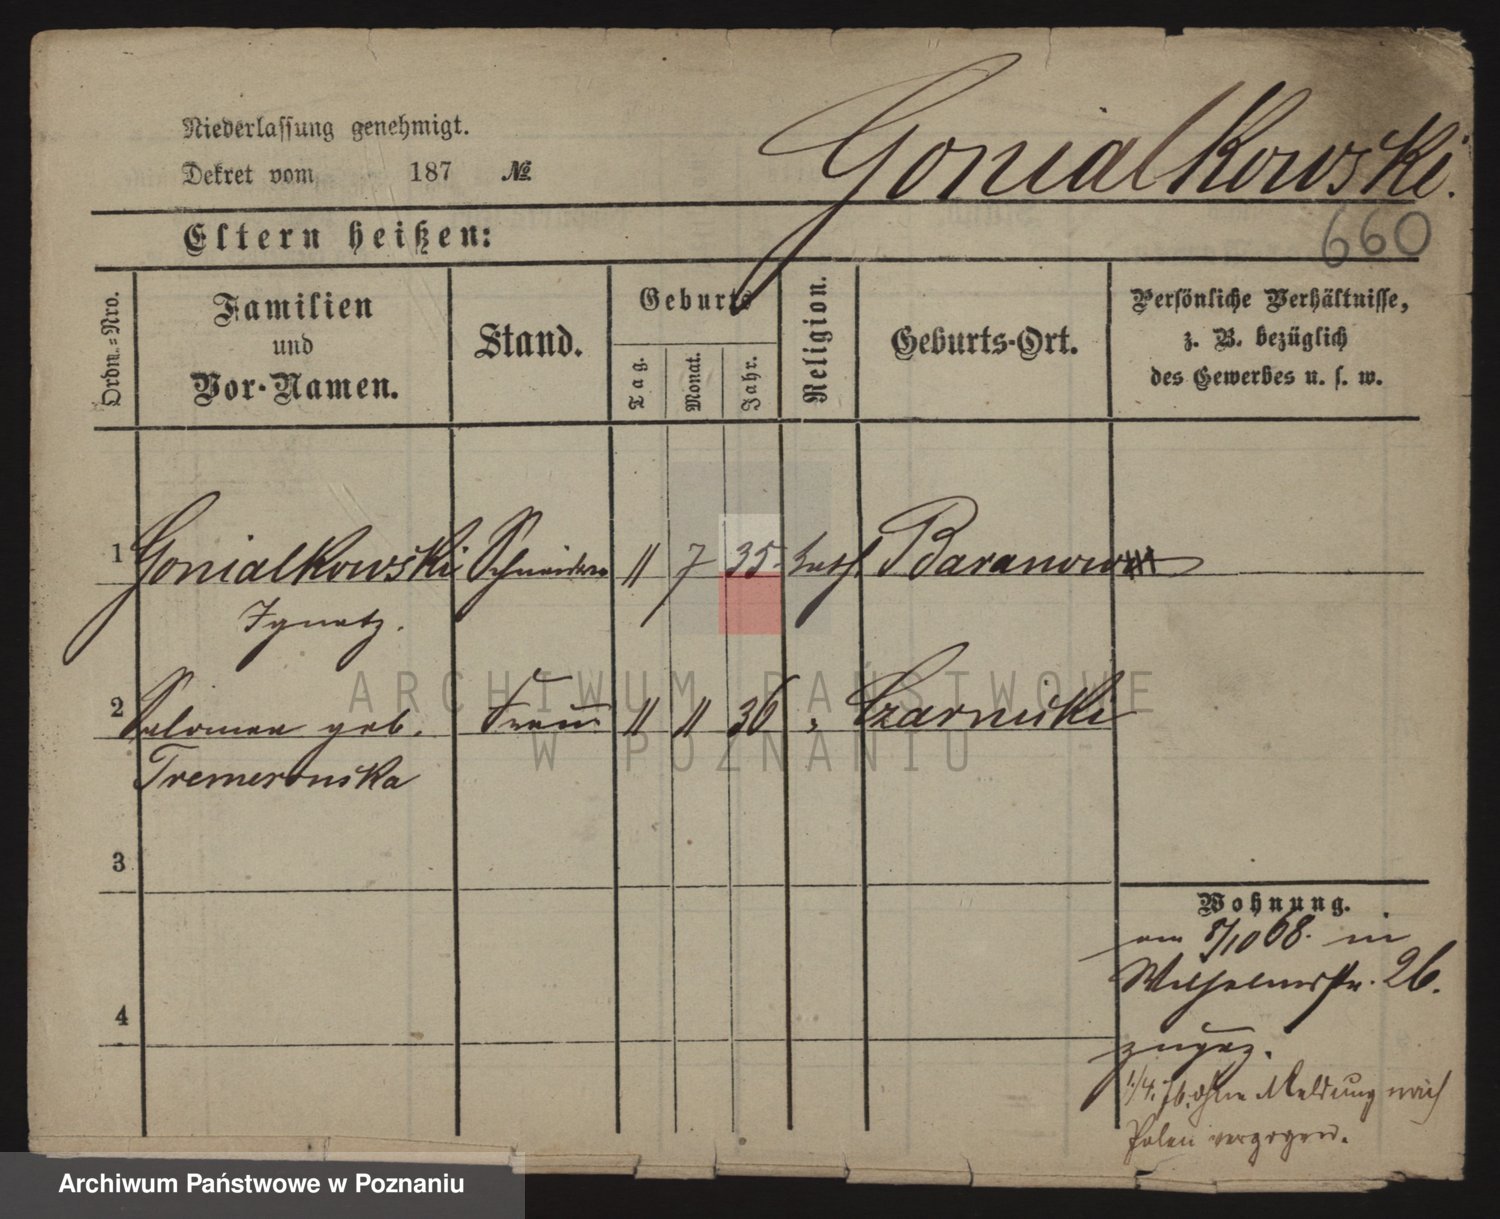 Niederlassung genehmigt.
Dekret vom 187 №
Gonialkowski.
660
Eltern heißen:
Ordn.=Nro.
Familien
und
Vor-Namen.
Stand.
Geburts
Tag.
Monat.
Jahr.
Religion.
Geburts-Ort.
Persönliche Verhältnisse,
z. B. bezüglich
des Gewerbes u. s. w.
1 Gonialkowski Schneider 11 7 35 kath. Baranowo
Ignatz.
2 Salomea geb. Frau " " 36 " Czarnicki
Tremerouska
3
4
Wohnung.
am 8/10 68. in
Wilhelmstr. 26.
zugez.
1/4. 76. ohne Meldung nach
Polen verzogen.
ARCHIWUM PAŃSTWOWE
W POZNANIU
Archiwum Państwowe w Poznaniu